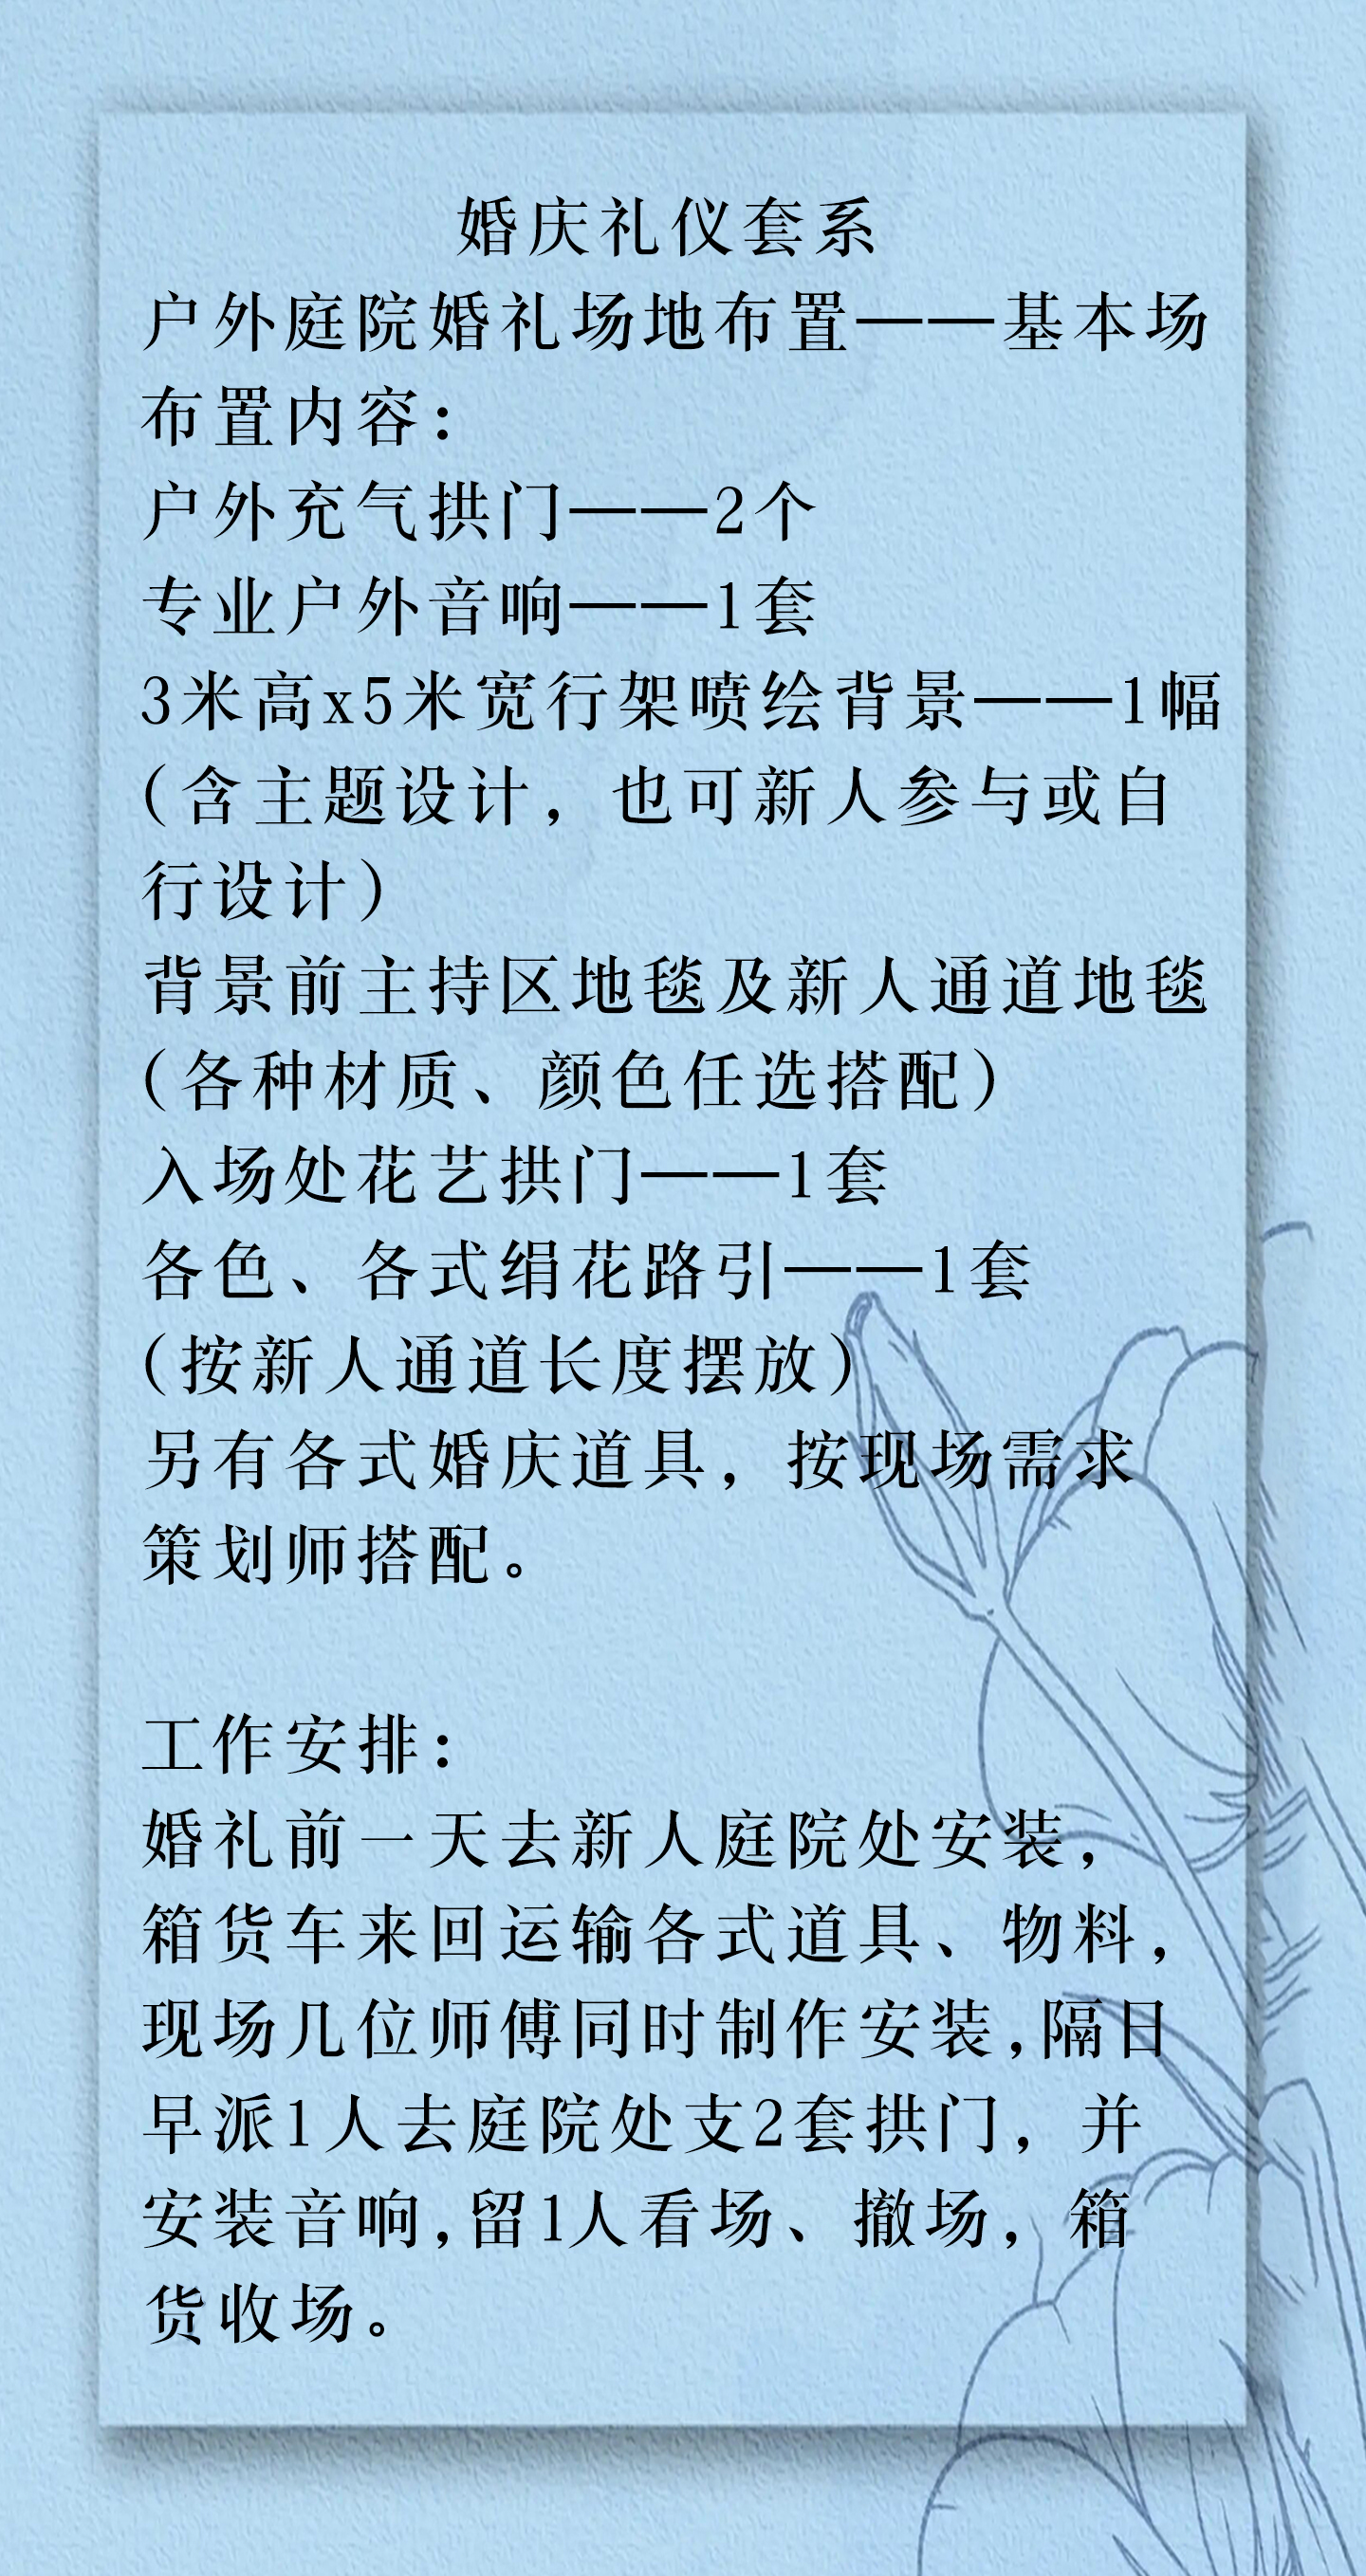 婚庆礼仪套系
户外庭院婚礼场地布置——基本场
布置内容：
户外充气拱门——2个
专业户外音响——1套
3米高x5米宽行架喷绘背景——1幅
(含主题设计，也可新人参与或自
行设计)
背景前主持区地毯及新人通道地毯
(各种材质、颜色任选搭配)
入场处花艺拱门——1套
各色、各式绢花路引——1套
(按新人通道长度摆放)
另有各式婚庆道具，按现场需求
策划师搭配。
工作安排：
婚礼前一天去新人庭院处安装，
箱货车来回运输各式道具、物料，
现场几位师傅同时制作安装,隔日
早派1人去庭院处支2套拱门，并
安装音响,留1人看场、撤场，箱
货收场。